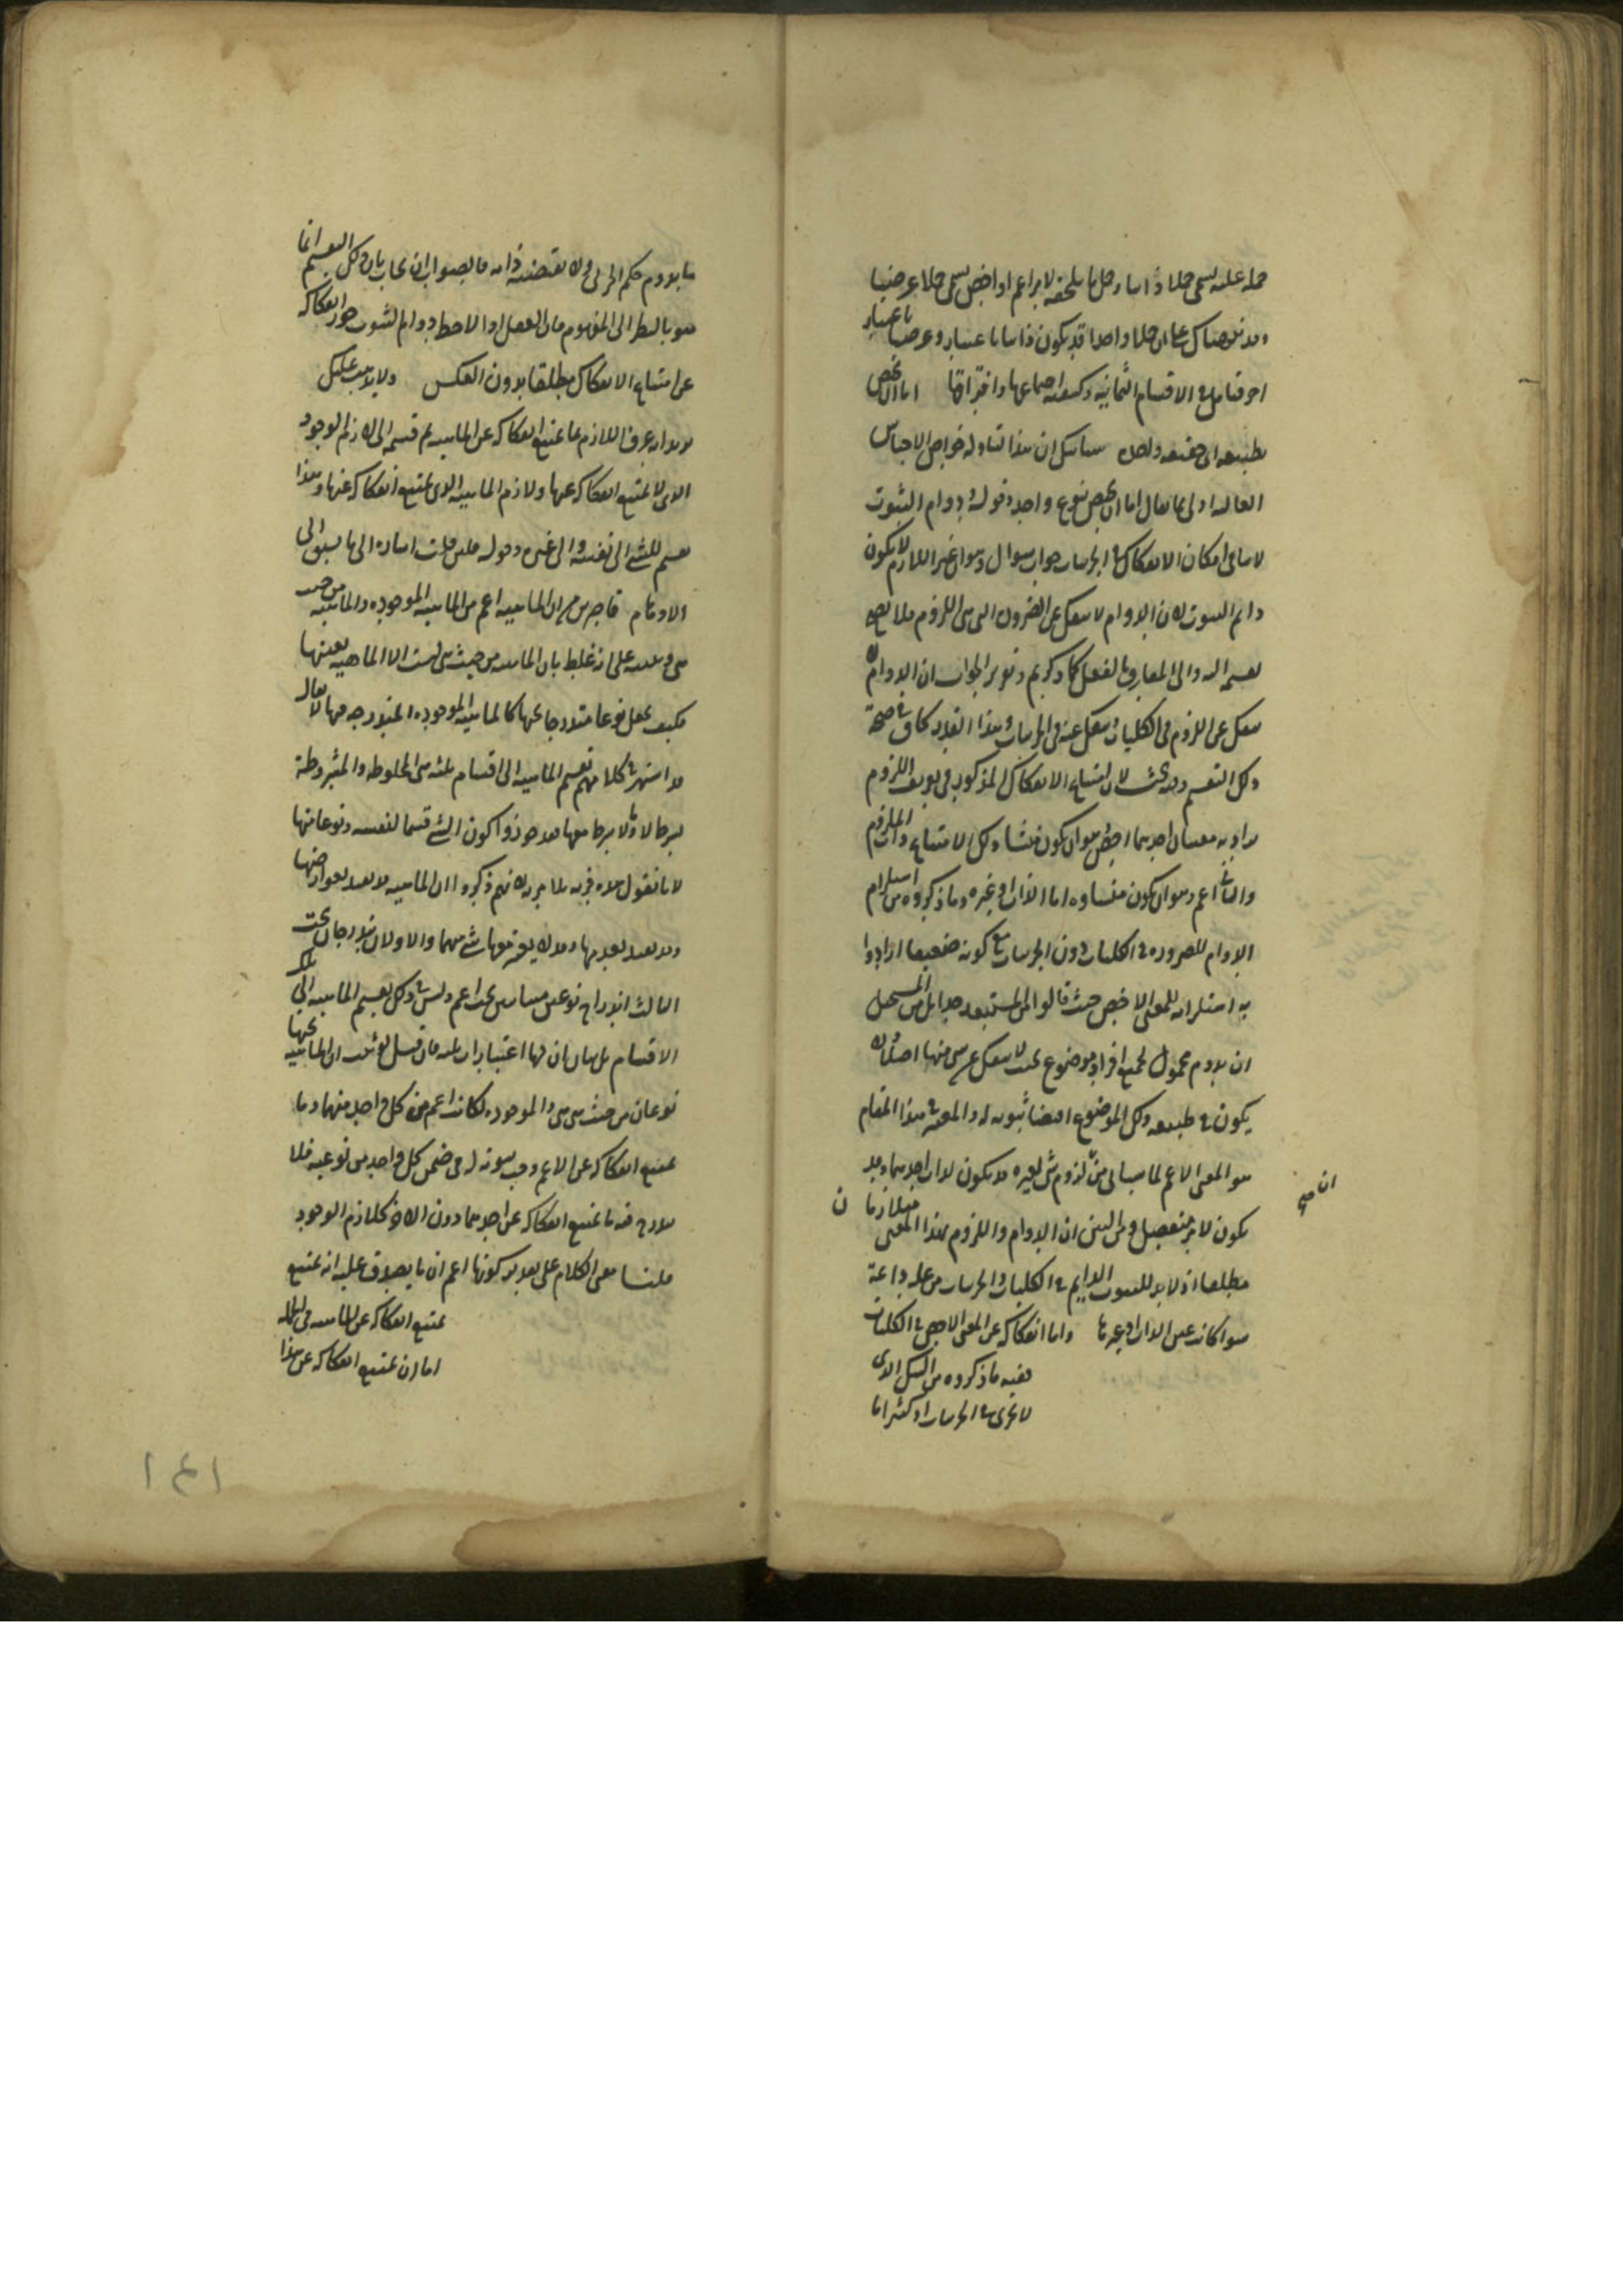 حمله عليه يسمى حملا ذاتيا وحمل ما يلحقه لامر اعم او اخص يسمى حملا عرضيا
وقد نبهناك على ان حملا واحدا قد يكون ذاتيا باعتبار وعرضيا باعتبار
اخر فتامل في الاقسام الثمانية وكيفية اجماعها وافتراقها اما ان يخص
بطبيعة اى حقيقة واحدة سيأتيك ان هذا لتناوله خواص الاجناس
العالية اولى مما يقال اما ان يخص بنوع واحد وقوله ودوام الثبوت
لا ينافى امكان الانفكاك في الجزئيات جواب سوال وهو ان غير اللازم لا يكون
دايم الثبوت لان الدوام لا ينفك عن الضرورة التى هى اللزوم فلا يصح
تقسيمه اليه والى المفارق بالفعل كما ذكرتم وتقرير الجواب ان الدوام لا
ينفك عن اللزوم فى الكليات وينفك عنه فى الجزئيات وهذا القدر كاف في صحة
ذلك التقسيم وفيه بحث لان امتناع الانفكاك المذكور فى تعريف اللزوم
يراد به معنيان احدهما اخص وهو ان يكون منشا ذلك الامتناع ذات الملزوم
والثاني اعم وهو ان يكون منشاوه اما الذات او غيره وما ذكروه من استلزام
الدوام للضرورة في الكليات دون الجزئيات مع كونه ضعيفا ارادوا
به استلزامه للمعنى الاخص حيث قالوا من المستبعد جدا بل من المستحيل
ان يدوم محمول لجميع افراد موضوع بحيث لا ينفك عن شى منها اصلا ولا
يكون في طبيعة ذلك الموضوع اقتضا ثبوته له والمعتبر في هذا المقام
هو المعنى الاعم لما سيأتى من ان لزوم شى لغيره قد يكون لذات احدهما وقد
يكون لامر منفصل ومن البين ان الدوام واللزوم بهذا المعنى متلازمان
مطلقا اذ لا بد للثبوت الدايم في الكليات والجزئيات من علة دايمة
سوا كانت عين الذات او غيرها واما انفكاكه عن المعنى الاخص في الكليات
ففيه ما ذكروه من الشك الذى
لا يجرى في الجزئيات اذ كثيرا ما
ان صح
ما يدوم حكم الجزئى ولا تقتضيه ذاته فالصواب ان يجاب بان ذلك التقسيم انما
هو بالنظر الى المفهوم فان العقل اذا لاحظ دوام الثبوت جوز انفكاكه
عن امتناع الانفكاك مطلقا بدون العكس ولا يذهب عليك
يريد انه عرف اللازم بما يمتنع انفكاكه عن الماهية ثم قسمه الى لازم الوجود
الذى لا يمتنع انفكاكه عنها ولازم الماهية الذى يمتنع انفكاكه عنها وهذا
تقسيم للشئ الى نفسه والى غيره وقوله فلئن قلت اشارة الى ما يسبق الى
الاوهام قاجر من ان الماهية اعم من الماهية الموجودة والماهية من حيث
هى ونبه على انه غلط بان الماهية من حيث هى ليست الا الماهية بعينها
فكيف تجعل نوعا مندرجا تحتها كالماهية الموجودة المندرجة فيها لا يقال
قد اشتهر في كلامهم تقسيم الماهية الى اقسام ثلثة هى المخلوطة والمشروطة
بشرط لا ولا بشرط فهم قد جوزوا كون الشئ قسما لنفسه ونوعا منها
لانا نقول هذه فرية بلا مرية لانهم ذكروا ان الماهية قد تعتبر بعوارضها
وقد تعتبر بعدمها وقد لا يعتبر معها شئ منهما والاولان يندرجان تحت
الثالث اندراج نوعين متباينين تحت اعم وليس في ذلك تقسيم الماهية الى تلك
الاقسام بل بيان ان لها اعتبارات ثلثة فان قيل لو ثبت ان الماهية تحتها
نوعان من حيث هى هى والموجودة لكانت اعم من كل واحد منهما وما
يمتنع انفكاكه عن الاعم وجب ثبوته له فى ضمن كل واحد من نوعيه فلا
يندرج فيه ما يمتنع انفكاكه عن احدهما دون الاخر كلازم الوجود
قلنا معنى الكلام على تقدير كونها اعم ان ما يصدق عليه انه يمتنع
يمتنع انفكاكه عن الماهية فى الجملة
اما ان يمتنع انفكاكه عن هذا
١٤١